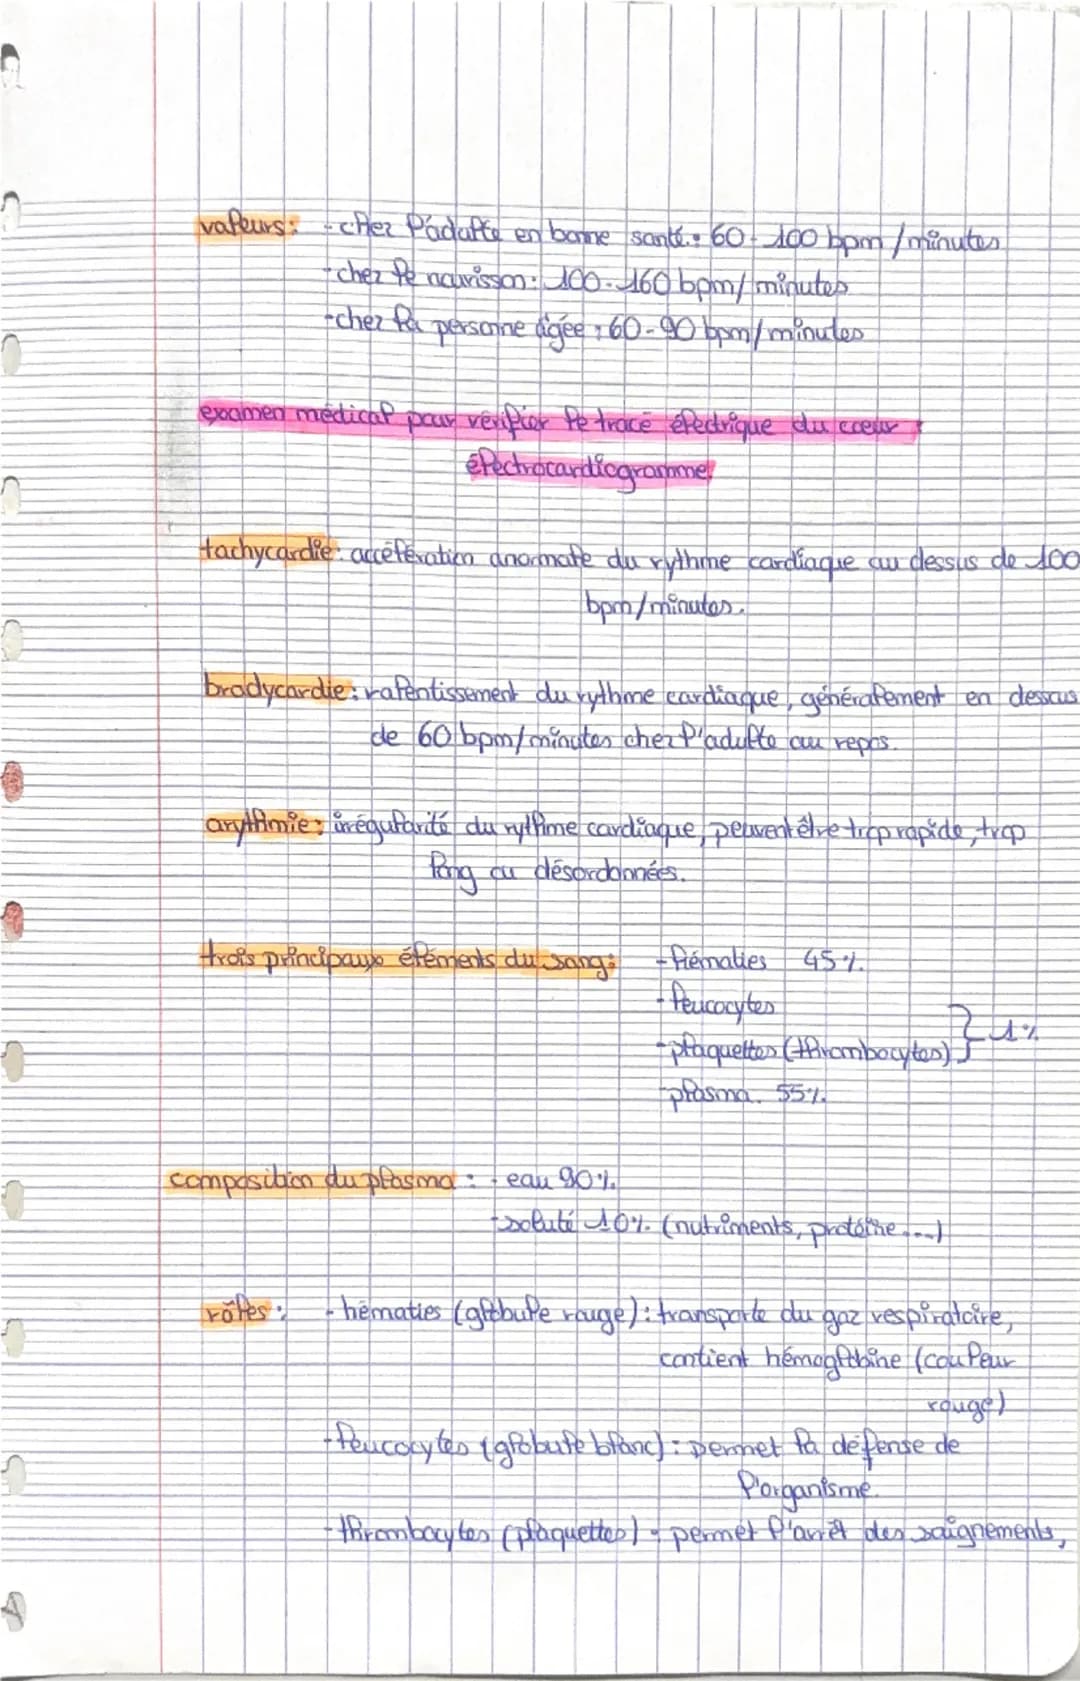 valeurs : - chez l'adulte en bonne santé : 60 - 100 bpm / minutes
- chez le nourisson : 100 - 160 bpm / minutes
- chez la personne âgée : 60 - 90 bpm / minutes
examen médical pour vérifier le tracé électrique du coeur :
électrocardiogramme.
tachycardie : accélération anormale du rythme cardiaque au dessus de 100
bpm / minutes.
bradycardie : ralentissement du rythme cardiaque, généralement en dessous
de 60 bpm / minutes chez l'adulte au repos.
arythmie : irrégularité du rythme cardiaque, peuvent être trop rapide, trop
long ou désordonnées.
trois principaux éléments du sang : - hématies 45 %.
- leucocytes
- plaquettes (thrombocytes) } 1 %
- plasma. 55 %.
composition du plasma : - eau 90 %.
- soluté 10 %. (nutriments, protéine ...)
rôles : - hématies (globule rouge) : transporte du gaz respiratoire,
contient hémoglobine (couleur
rouge)
- leucocytes (globule blanc) : permet la défense de
l'organisme.
- thrombocytes (plaquettes) : permet l'arrêt des saignements,